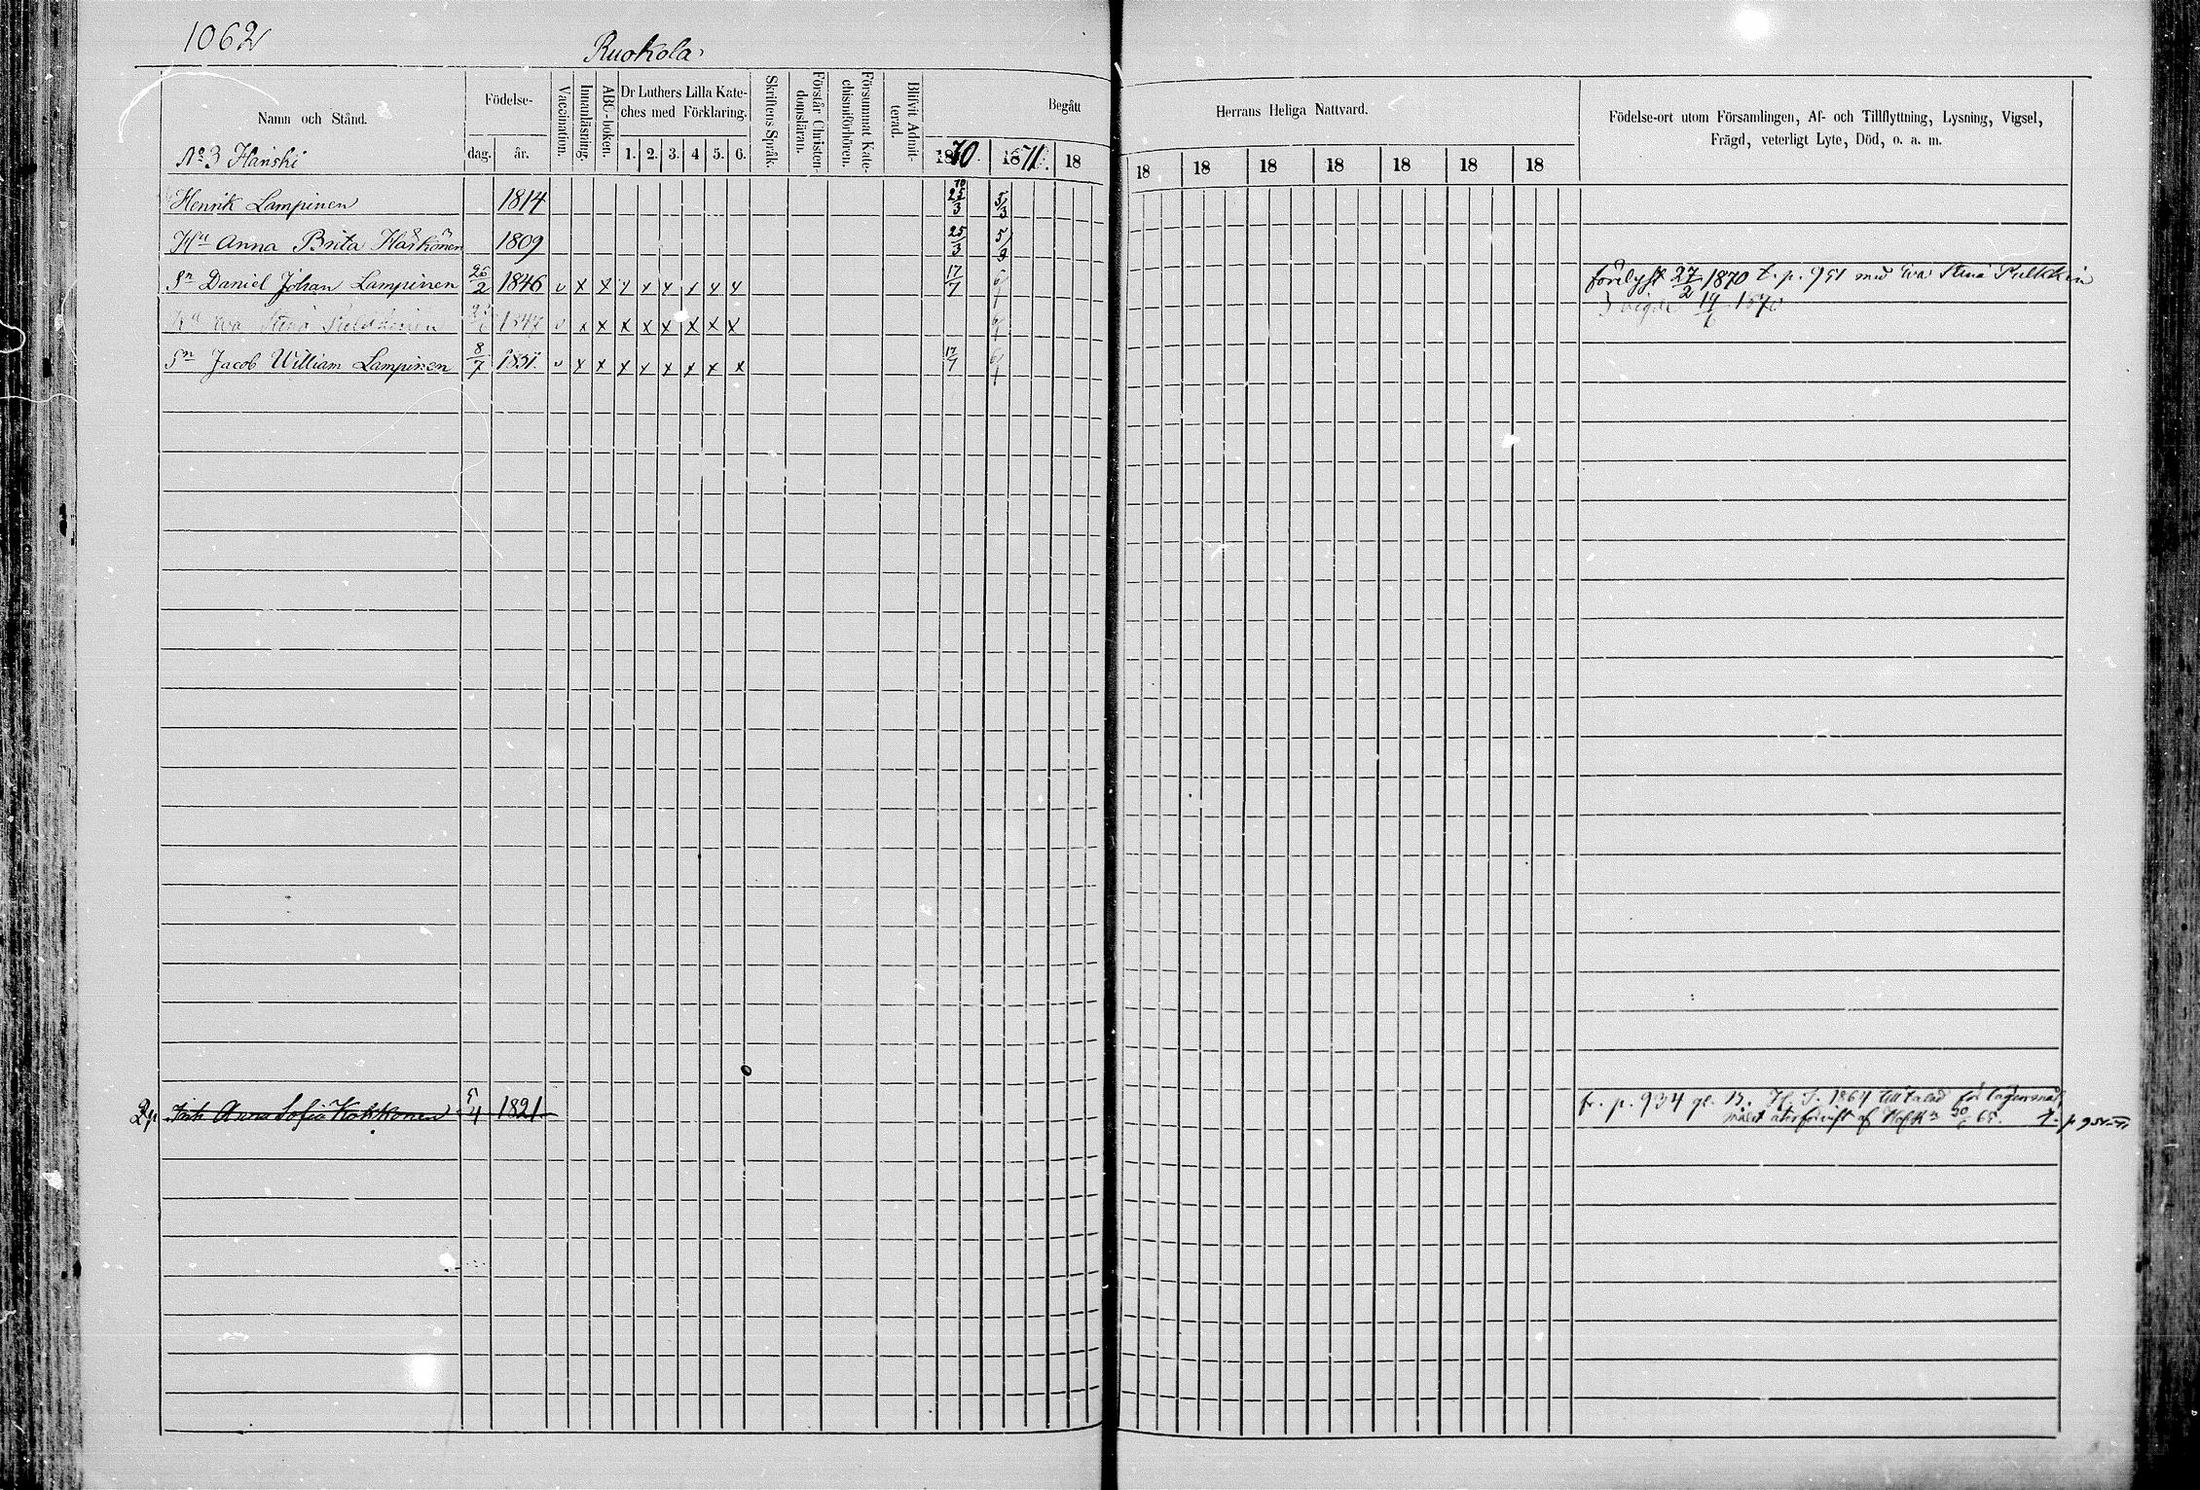 1062
Ruokola
Namn och Stånd.
Födelse-
dag. år.
Vaccination.
Innanläsning.
ABC-boken.
Dr Luthers Lilla Kate-
ches med Förklaring.
1. 2. 3. 4 5. 6.
Skriftens Språk.
Förstår Christen-
domsläran.
Försummat Kate-
chismiförhören.
Blifvit Admit-
terad.
Begått
Herrans Heliga Nattvard.
1870. 1871. 18 18 18 18 18 18 18 18
Födelse-ort utom Församlingen, Af- och Tillflyttning, Lysning, Vigsel,
Frägd, veterligt Lyte, Död, o. a. m.
No 3 Hanski
Henrik Lampinen 1814 25/3 5/3
Hu Anna Brita Härkönen 1809 25/3 5/3
Sn Daniel Johan Lampinen 26/2 1846 v x x x x x x x x 17/7 förelyst 27/2 1870 t. p. 951 med Eva Stina
Hu Eva Stina 1847 v x x x x x x x x vigde 1870
Sn Jacob William Lampinen 8/7 1851. v x x x x x x x x 17/7
Anna Sofia Kokkonen 5/4 1821 fr. p. 934 1864 för
af 65.